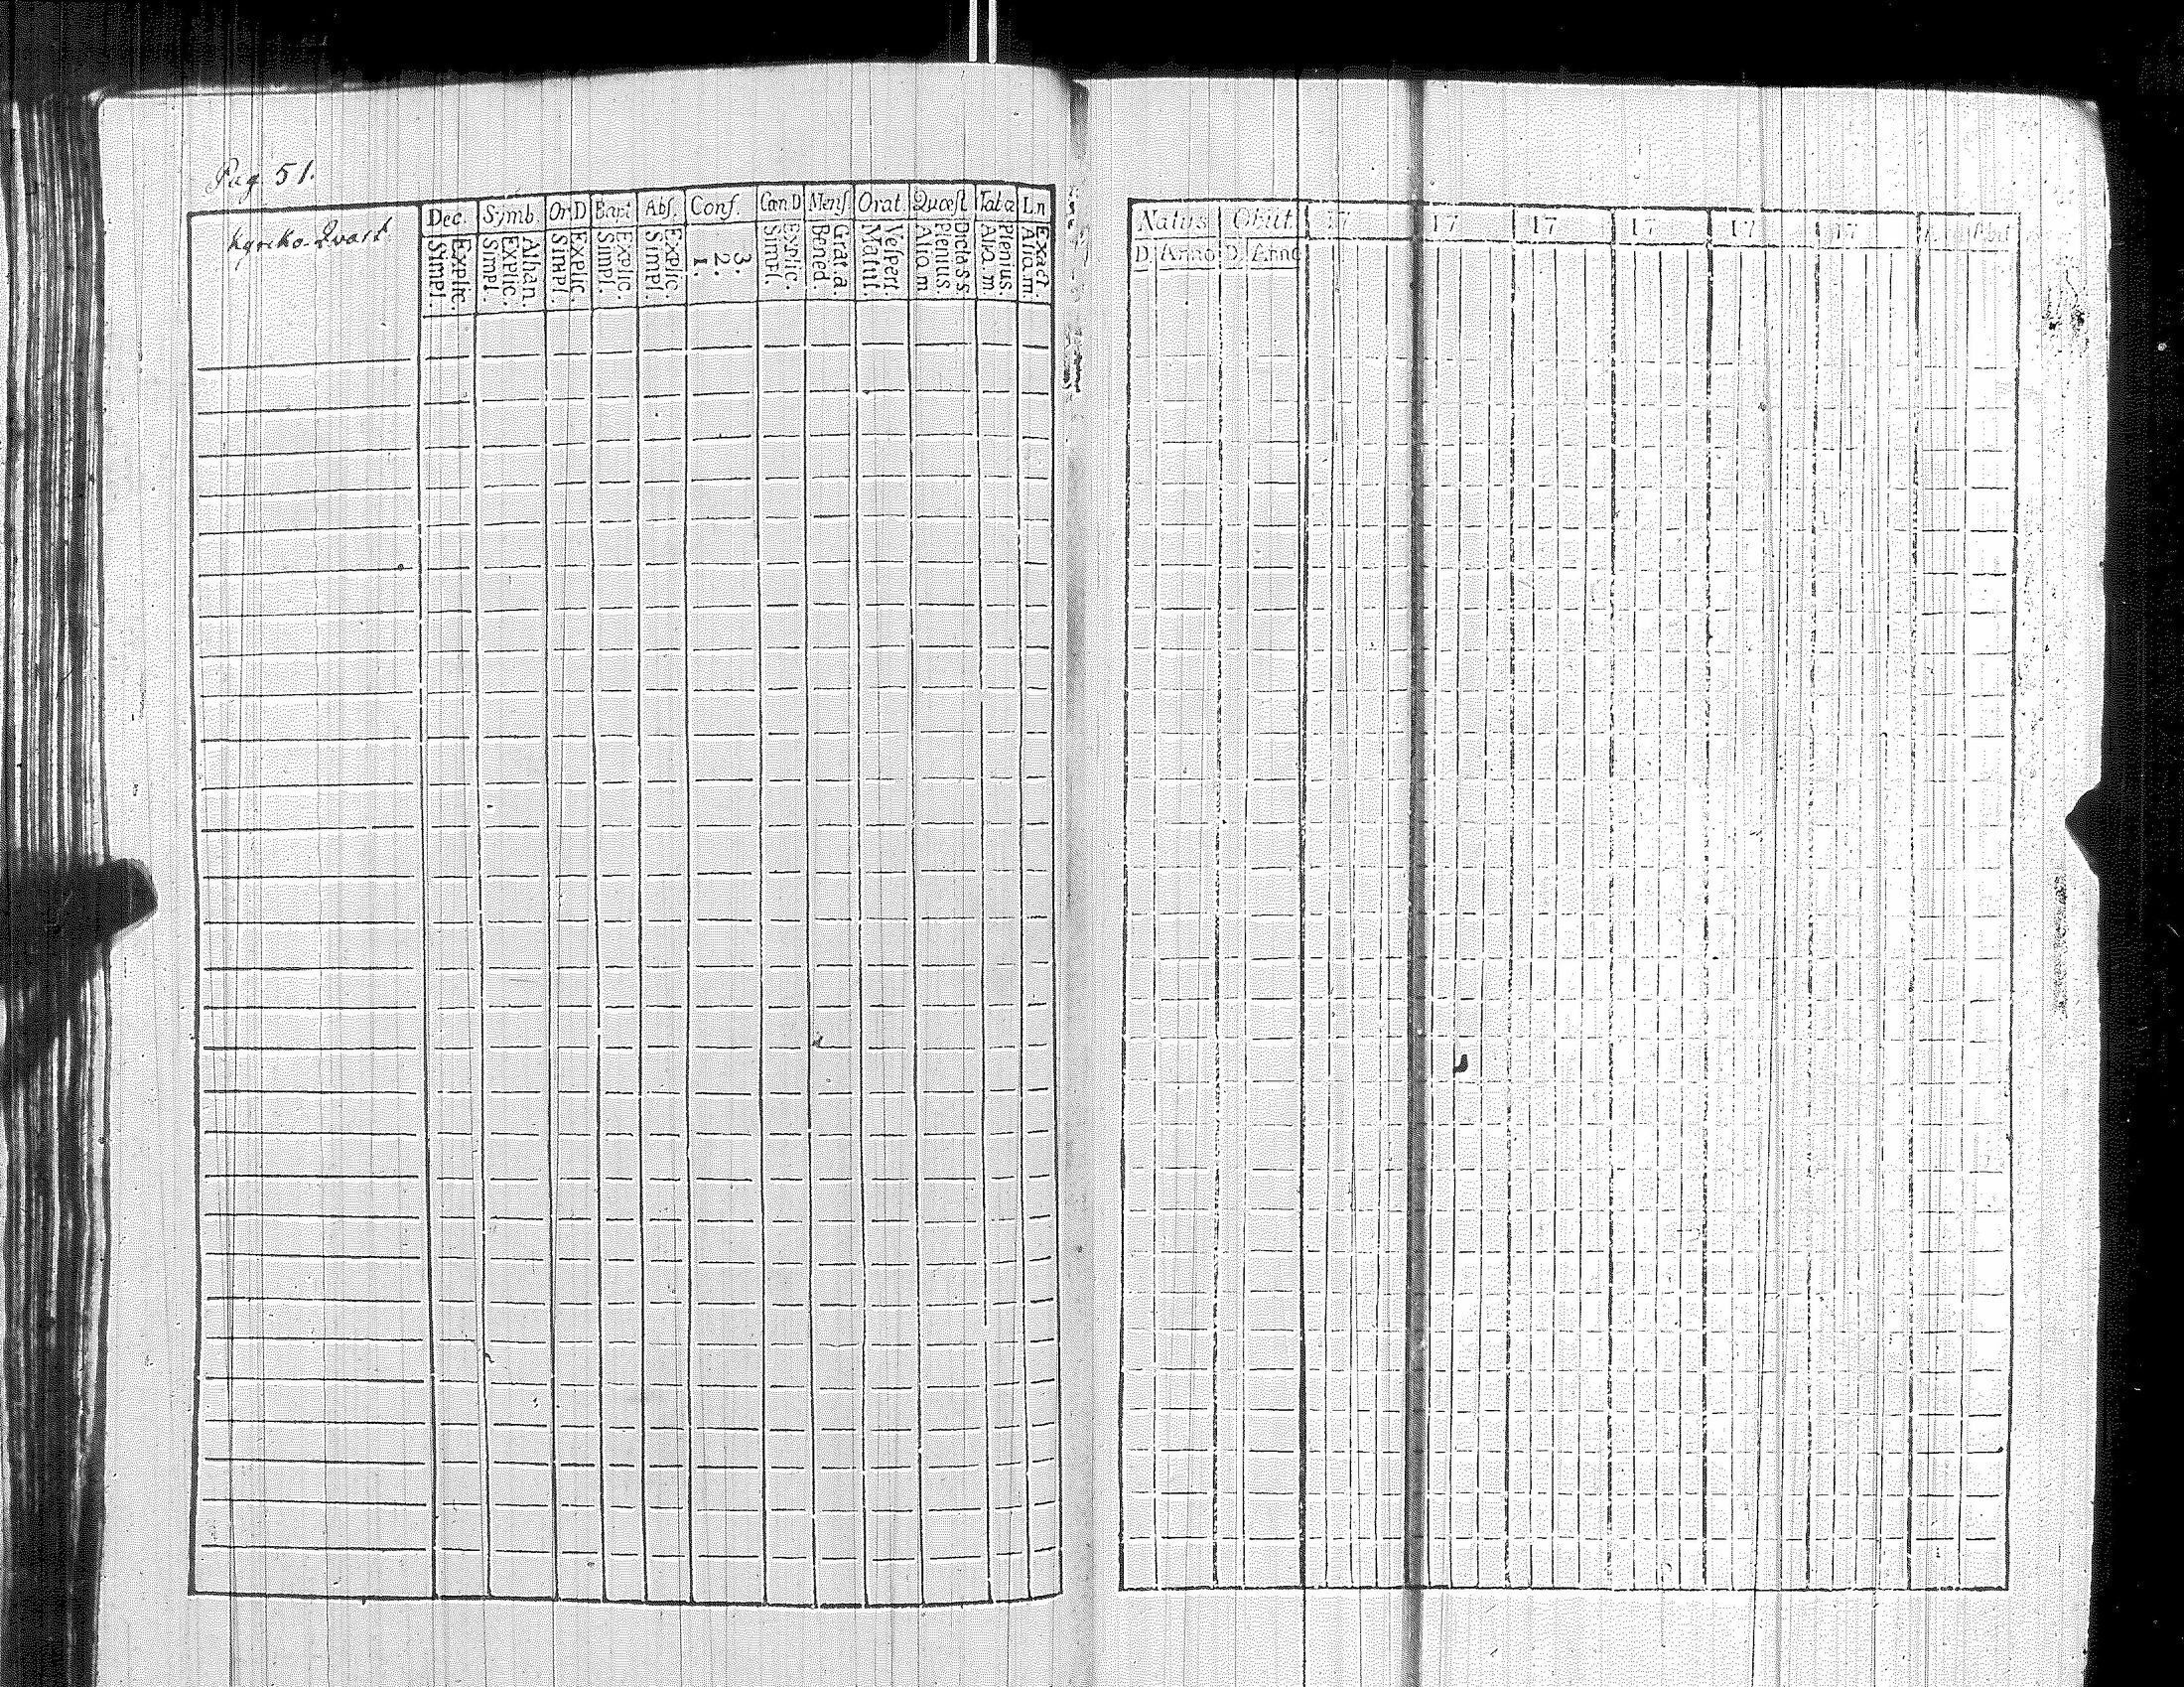 Pag. 51.
Kyrcko-Qvart
Dec. Symb. Or.D Bapt Abs. Conf. Cœn.D Menſ. Orat. Quæſt. Tabæ Ln
Simpl. Explic. Simpl. Explic. Athan. Simpl. Explic. Simpl. Explic. Simpl. Explic. 1. 2. 3. Simpl. Explic. Bened. Grat. a. Matut. Veſpert. Alio. m Plenius. Dicta S.S. Alio. m. Plenius. Alio. m. Exact.
Natus Obiit 17 17 17 17 17 17
D. Anno D. Anno